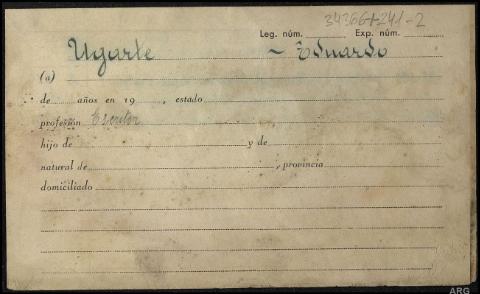 34366-1241-2
Leg. núm. Exp. núm.
Ugarte ~ Eduardo
(a)
de años en 19 , estado
profesión Escritor
hijo de y de
natural de , provincia
domiciliado
ARG